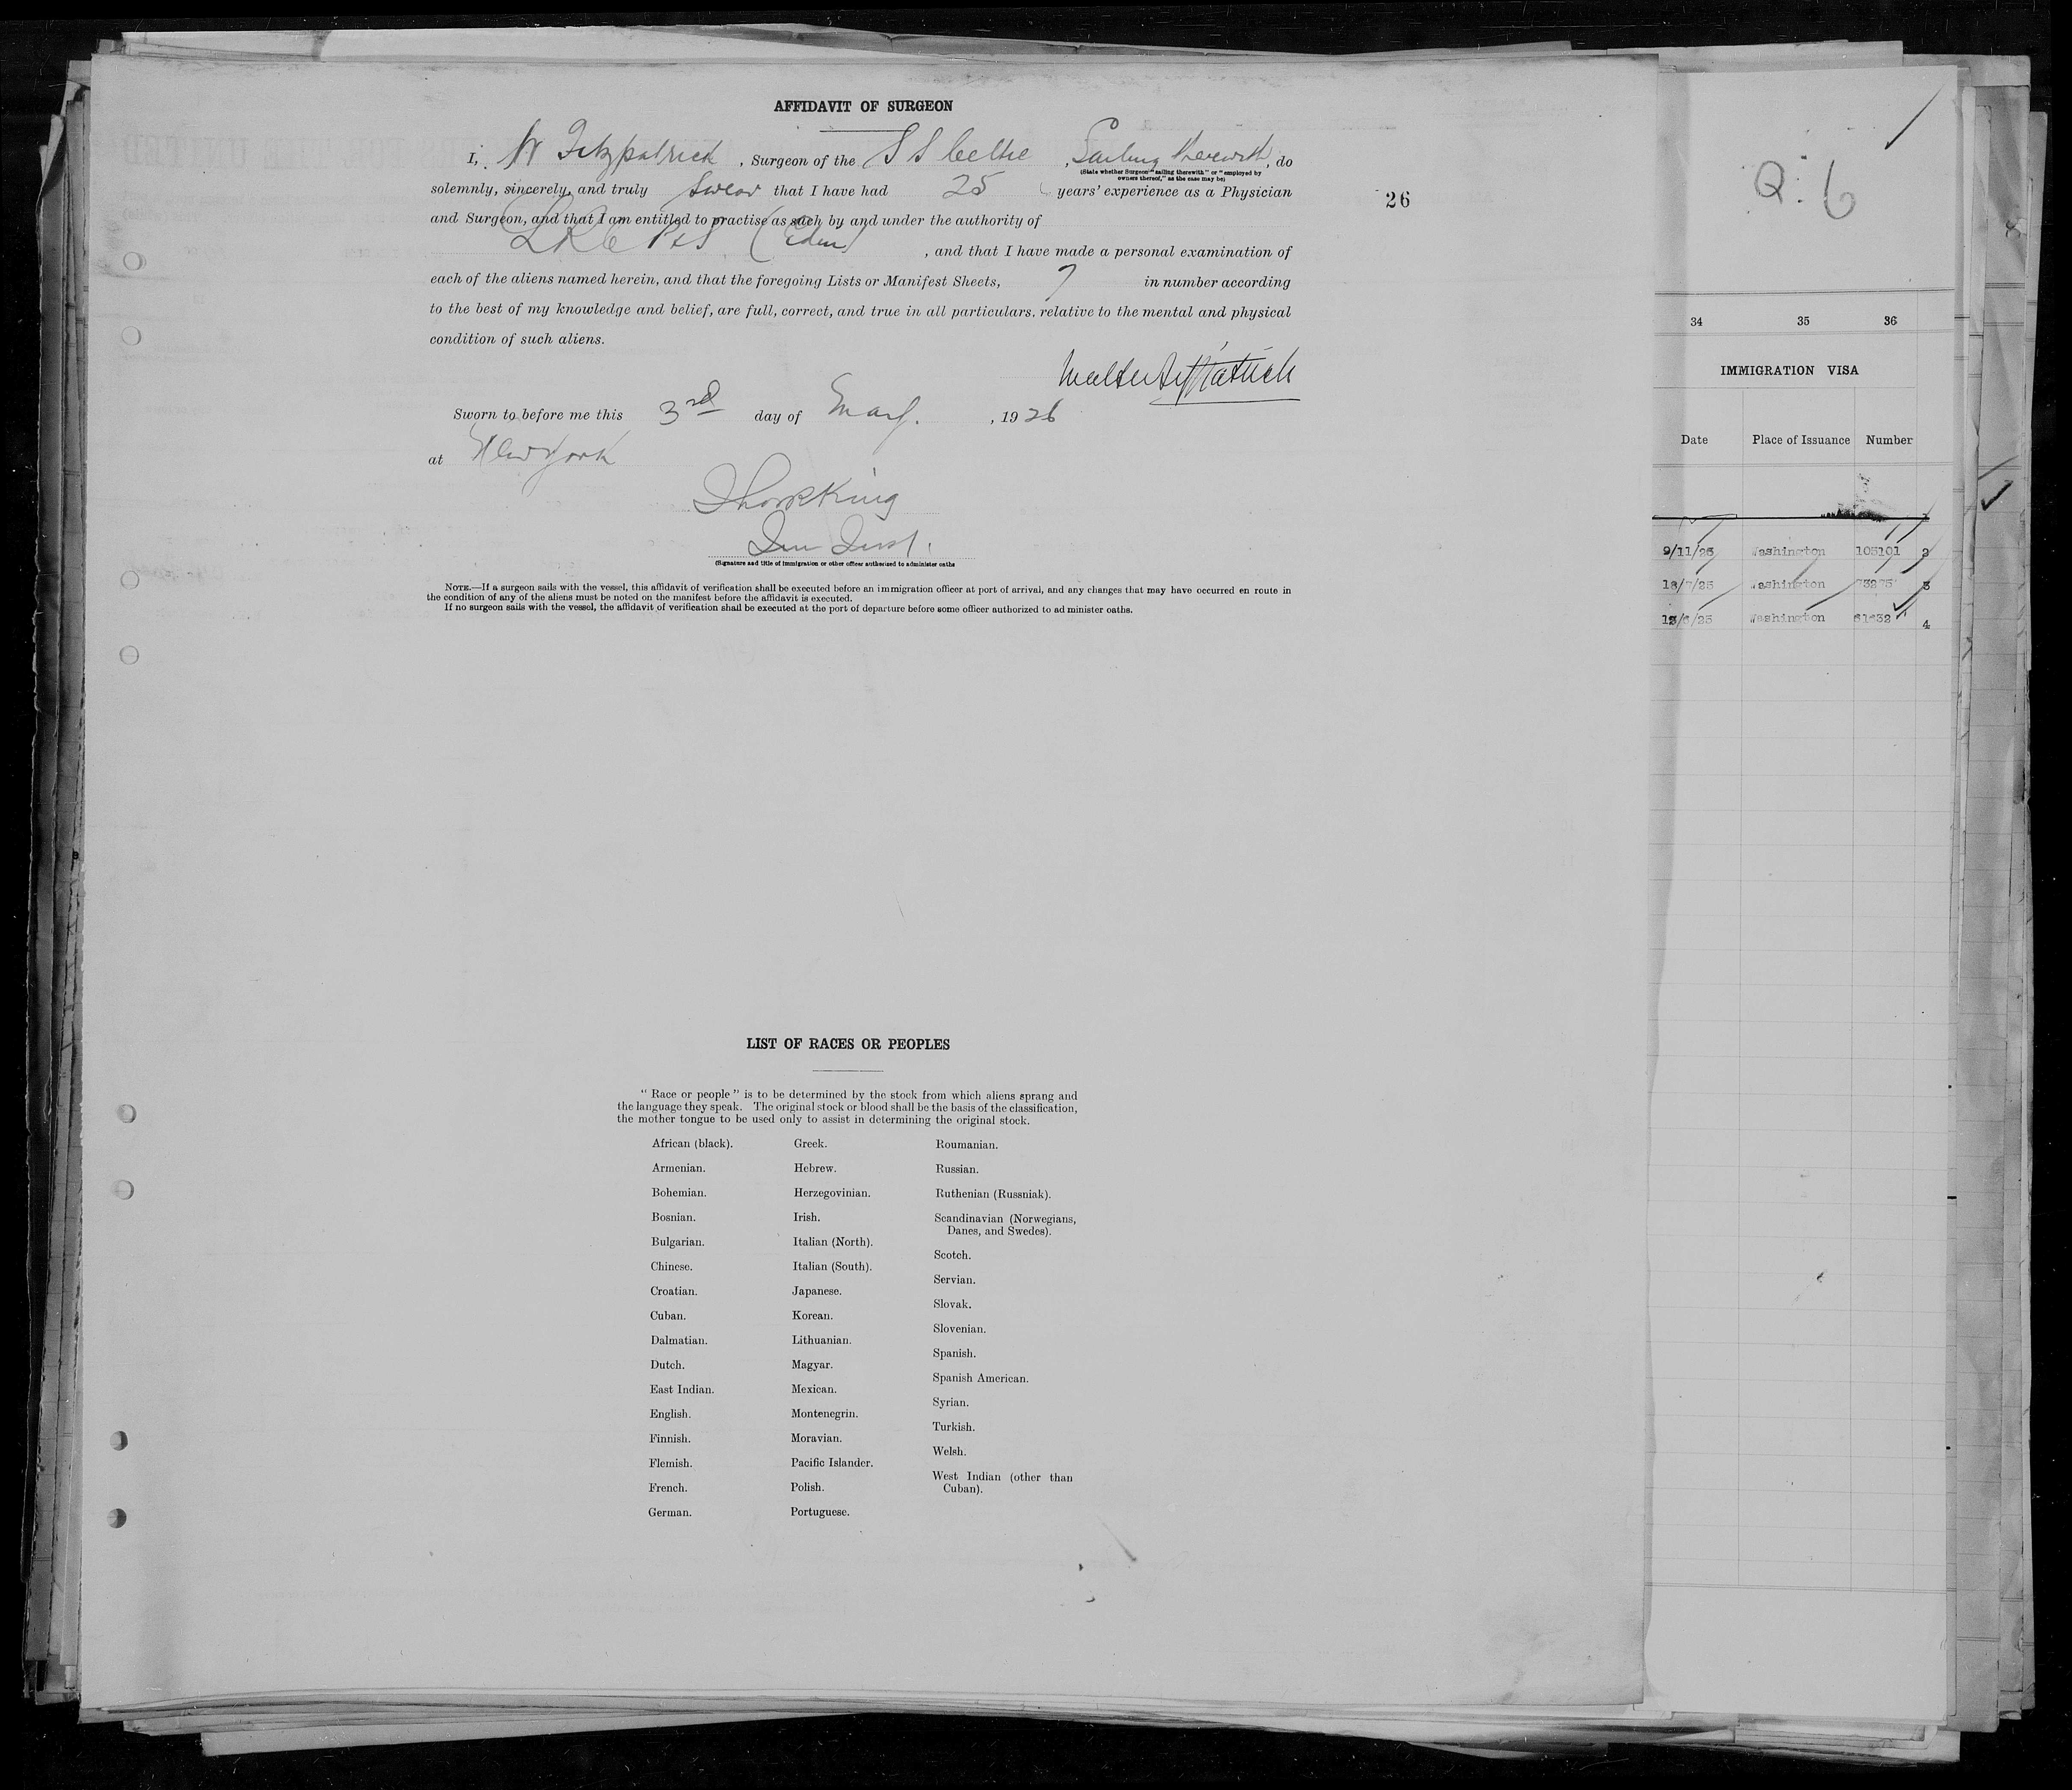 AFFIDAVIT OF SURGEON
I, W Fitzpatrick , Surgeon of the S S Celtic , Sailing therewith , do
(State whether Surgeon "sailing therewith" or "employed by
owners thereof," as the case may be)
solemnly, sincerely, and truly swear that I have had 25 years' experience as a Physician
and Surgeon, and that I am entitled to practise as such by and under the authority of
(Edin)
, and that I have made a personal examination of
each of the aliens named herein, and that the foregoing Lists or Manifest Sheets, 7 in number according
to the best of my knowledge and belief, are full, correct, and true in all particulars, relative to the mental and physical
condition of such aliens.
Sworn to before me this 3rd day of May. , 1926
at New York
(Signature and title of immigration or other officer authorised to administer oaths
NOTE.—If a surgeon sails with the vessel, this affidavit of verification shall be executed before an immigration officer at port of arrival, and any changes that may have occurred en route in
the condition of any of the aliens must be noted on the manifest before the affidavit is executed.
If no surgeon sails with the vessel, the affidavit of verification shall be executed at the port of departure before some officer authorized to administer oaths.
26
LIST OF RACES OR PEOPLES
" Race or people " is to be determined by the stock from which aliens sprang and
the language they speak. The original stock or blood shall be the basis of the classification,
the mother tongue to be used only to assist in determining the original stock.
African (black).
Armenian.
Bohemian.
Bosnian.
Bulgarian.
Chinese.
Croatian.
Cuban.
Dalmatian.
Dutch.
East Indian.
English.
Finnish.
Flemish.
French.
German.
Greek.
Hebrew.
Herzegovinian.
Irish.
Italian (North).
Italian (South).
Japanese.
Korean.
Lithuanian.
Magyar.
Mexican.
Montenegrin.
Moravian.
Pacific Islander.
Polish.
Portuguese.
Roumanian.
Russian.
Ruthenian (Russniak).
Scandinavian (Norwegians,
Danes, and Swedes).
Scotch.
Servian.
Slovak.
Slovenian.
Spanish.
Spanish American.
Syrian.
Turkish.
Welsh.
West Indian (other than
Cuban).
Q. 6
34 35 36
IMMIGRATION VISA
Date Place of Issuance Number
Washington 105101 2
Washington 3
Washington 4